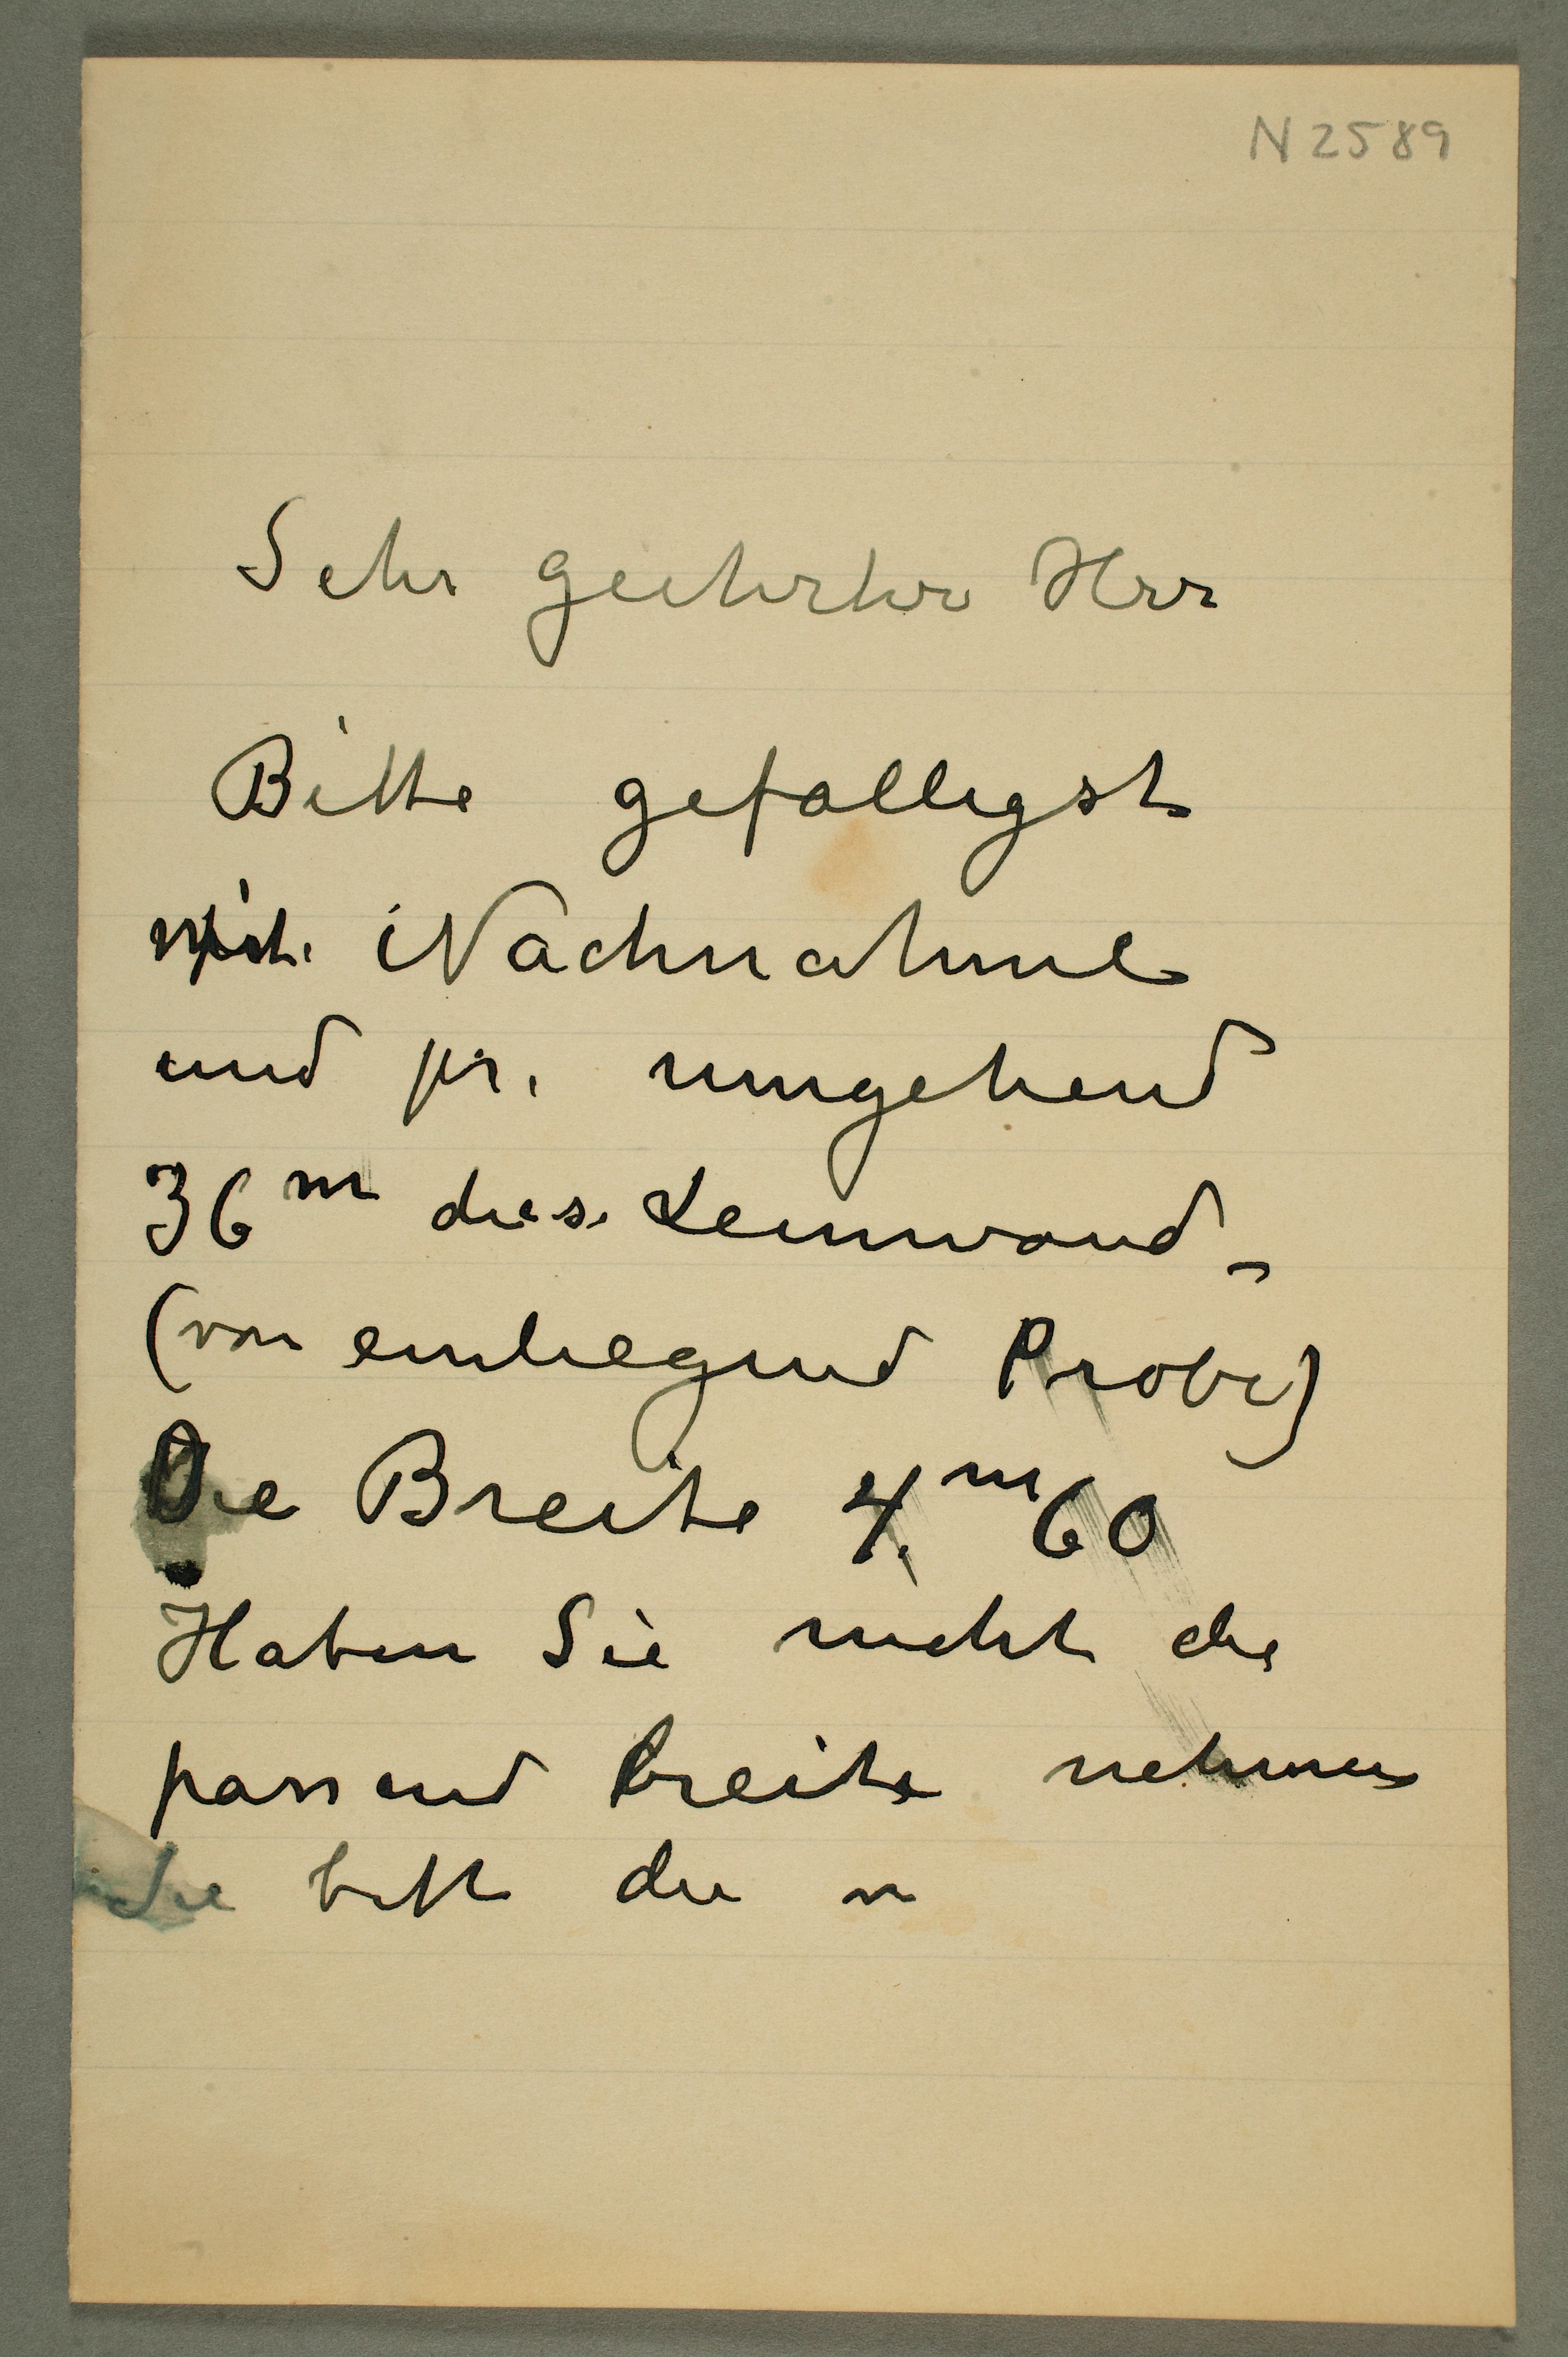 N 2589
Sehr geehrter Herr
Bitte gefalligst
mit Nachnahme
und pr. umgehend
36 m dies. Leinwand_
(von einliegend Probe)
Die Breite 4.m 60
Haben Sie nicht die
passend breite nehmen
Sie bitte die